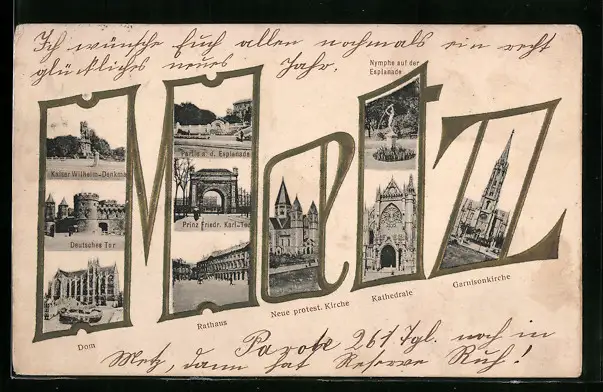 Ich wünsche Euch allen nochmals ein recht
glückliches neues Jahr.
Nymphe auf der
Esplanade
Metz
Partie a. d. Esplanade
Kaiser Wilhelm-Denkmal
Prinz Friedr. Karl-Tor
Deutsches Tor
Dom
Rathaus
Neue protest. Kirche
Kathedrale
Garnisonkirche
Parole 261 Tgl. noch in
Metz, dann hat Reserve Ruh!